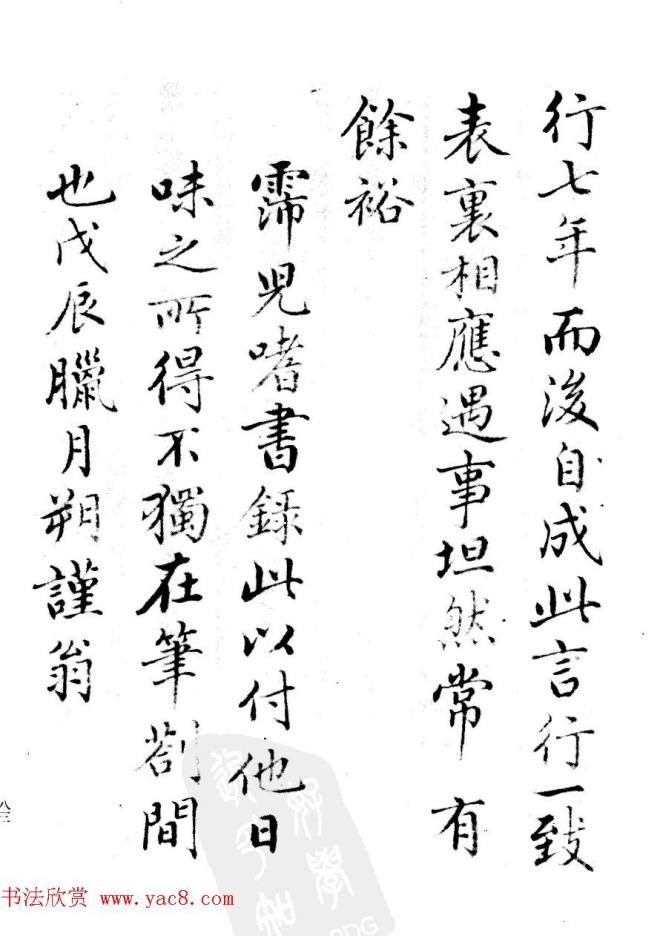 行七年而後自成此言行一致
表裏相應遇事坦然常有
餘裕
霈児嗜書錄此以付他日
味之所得不獨在筆劄間
也戊辰臘月朔謹翁
八三
书法欣赏 www.yac8.com